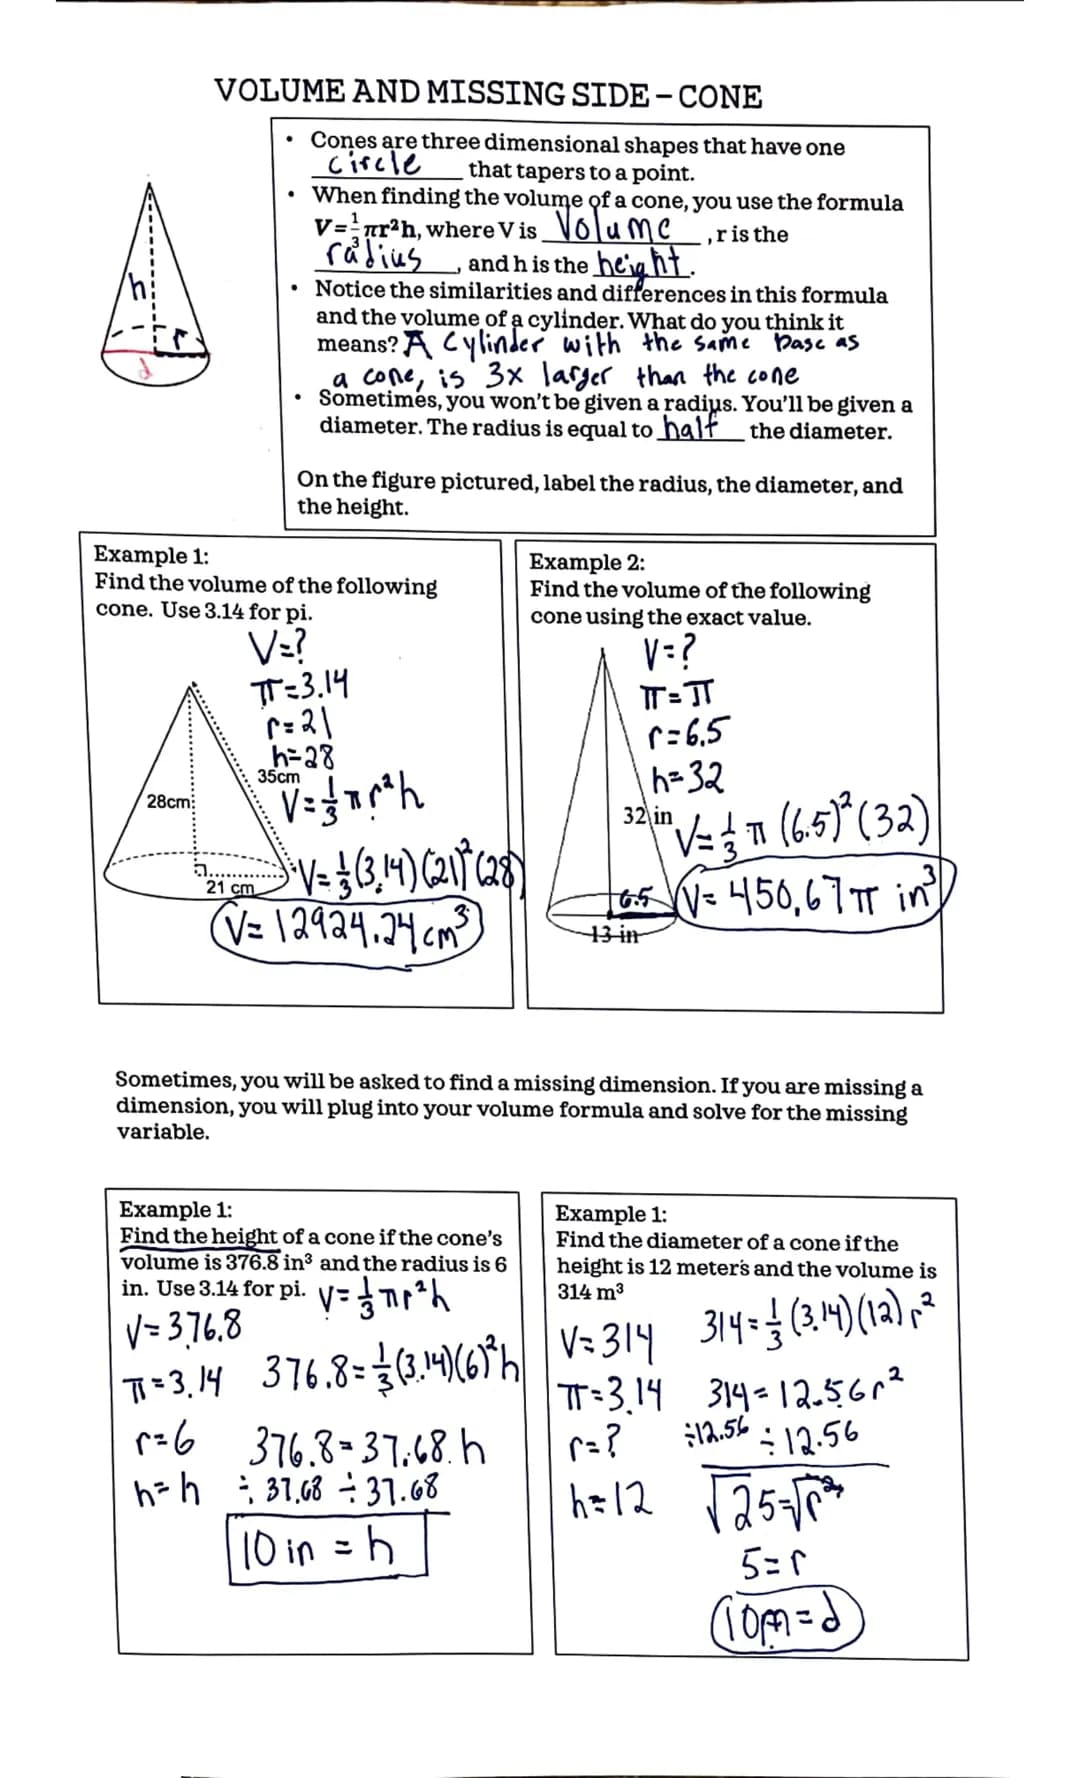 VOLUME AND MISSING SIDE – CONE
• Cones are three dimensional shapes that have one
circle that tapers to a point.
• When finding the volume of a cone, you use the formula
V=1/3πr²h, where V is Volume, r is the
radius, and h is the height.
• Notice the similarities and differences in this formula
and the volume of a cylinder. What do you think it
means? A Cylinder with the same base as
a cone, is 3x larger than the cone
• Sometimes, you won't be given a radius. You'll be given a
diameter. The radius is equal to half the diameter.
On the figure pictured, label the radius, the diameter, and
the height.
h
r
d
Example 1:
Find the volume of the following
cone. Use 3.14 for pi.
V=?
π=3.14
r=21
h=28
35cm
28cm
21 cm
V=1/3πr²h
V=1/3(3.14)(21)²(28)
V=12924.24cm³
Example 2:
Find the volume of the following
cone using the exact value.
V=?
π=π
r=6.5
h=32
32 in
V=1/3π(6.5)²(32)
6.5
V=450.67π in³
13 in
Sometimes, you will be asked to find a missing dimension. If you are missing a
dimension, you will plug into your volume formula and solve for the missing
variable.
Example 1:
Find the height of a cone if the cone's
volume is 376.8 in³ and the radius is 6
in. Use 3.14 for pi. V=1/3πr²h
V=376.8
π=3.14 376.8=1/3(3.14)(6)²h
r=6 376.8=37.68.h
h=h ÷37.68 ÷37.68
10 in = h
Example 1:
Find the diameter of a cone if the
height is 12 meters and the volume is
314 m³
V=314 314=1/3(3.14)(12)r²
π=3.14 314=12.56r²
r=? ÷12.56 ÷12.56
h=12 √25=√r²
5=r
10m=d